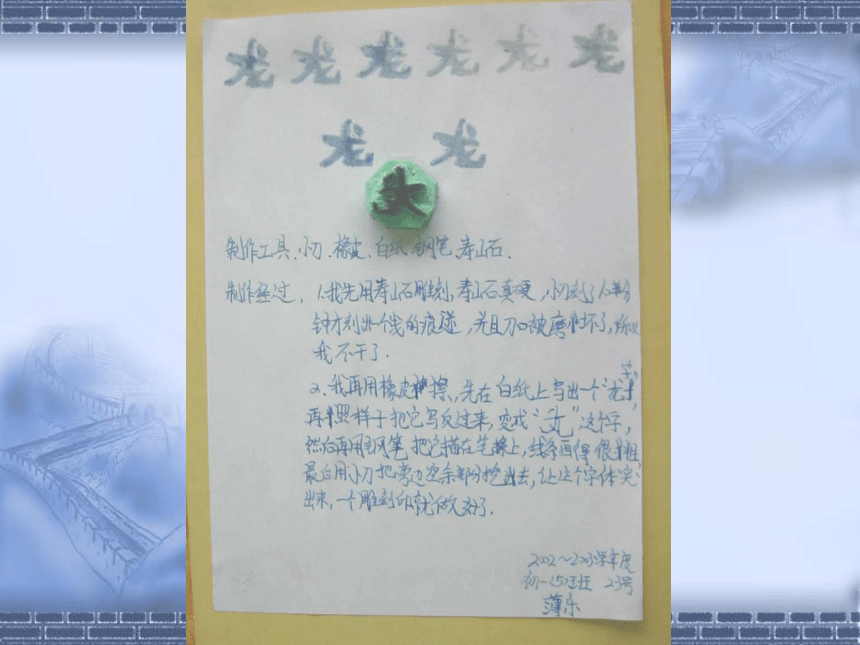 龙 龙 龙 龙 龙 龙
龙 龙
制作工具、小刀、橡皮、白纸、钢笔、寿山石.
制作经过、1、我先用寿山石雕刻,寿山石真硬,小刀刻了八、九分
钟才刻出一个浅的痕迹,并且刀口被磨坏了,所以
我不干了.
2、我再用橡皮擦,先在白纸上写出一个“龙”字,
再照样子把它写反过来,变成“ ”这个字,
然后再用钢笔把它描在笔擦上,线条画得很粗
最后用小刀把旁边空余部分挖出去,让这个字体突
出来,一个雕刻印就做好了.
2002~2003学年度
初一(5)班 23号
薄乐